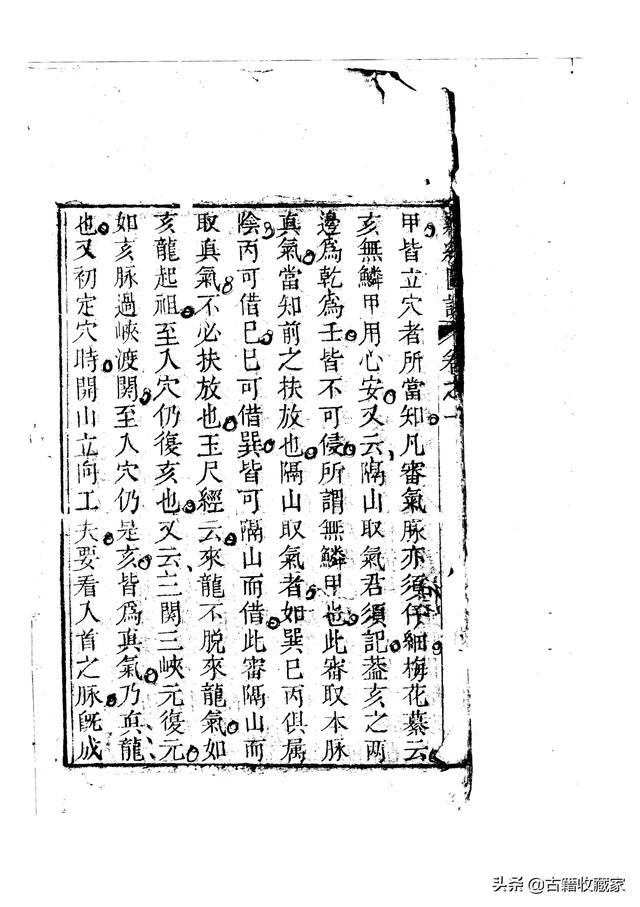 羅經圖說 卷之一
甲皆立穴者所當知凡審氣脉亦須仔細梅花墓云
亥無鱗甲用心安又云隔山取氣君須記葢亥之兩
邊爲乾爲壬皆不可侵所謂無鱗甲也此審取本脉
真氣當知前之扶放也隔山取氣者如巽巳丙俱属
陰丙可借巳巳可借巽皆可隔山而借此審隔山而
取真氣不必扶放也玉尺經云來龍不脱來龍氣如
亥龍起祖至入穴仍復亥也又云三関三峽元復元
如亥脉過峽渡関至入穴仍是亥皆爲真氣乃真龍
也又初定穴時開山立向工夫要看入首之脉旣成
头条 @古籍收藏家